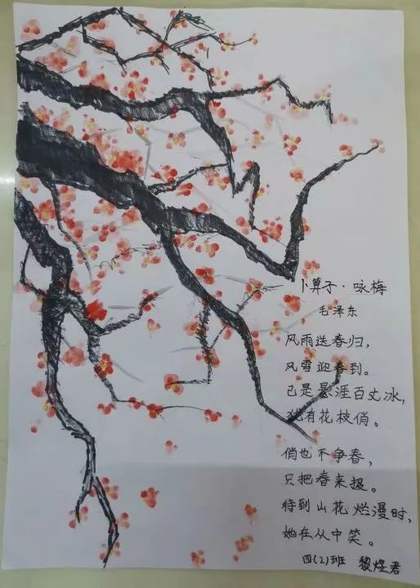 卜算子·咏梅
毛泽东
风雨送春归，
风雪迎春到。
已是悬涯百丈冰，
犹有花枝俏。
俏也不争春，
只把春来报。
待到山花烂漫时，
她在从中笑。
四（2）班 黎煜君